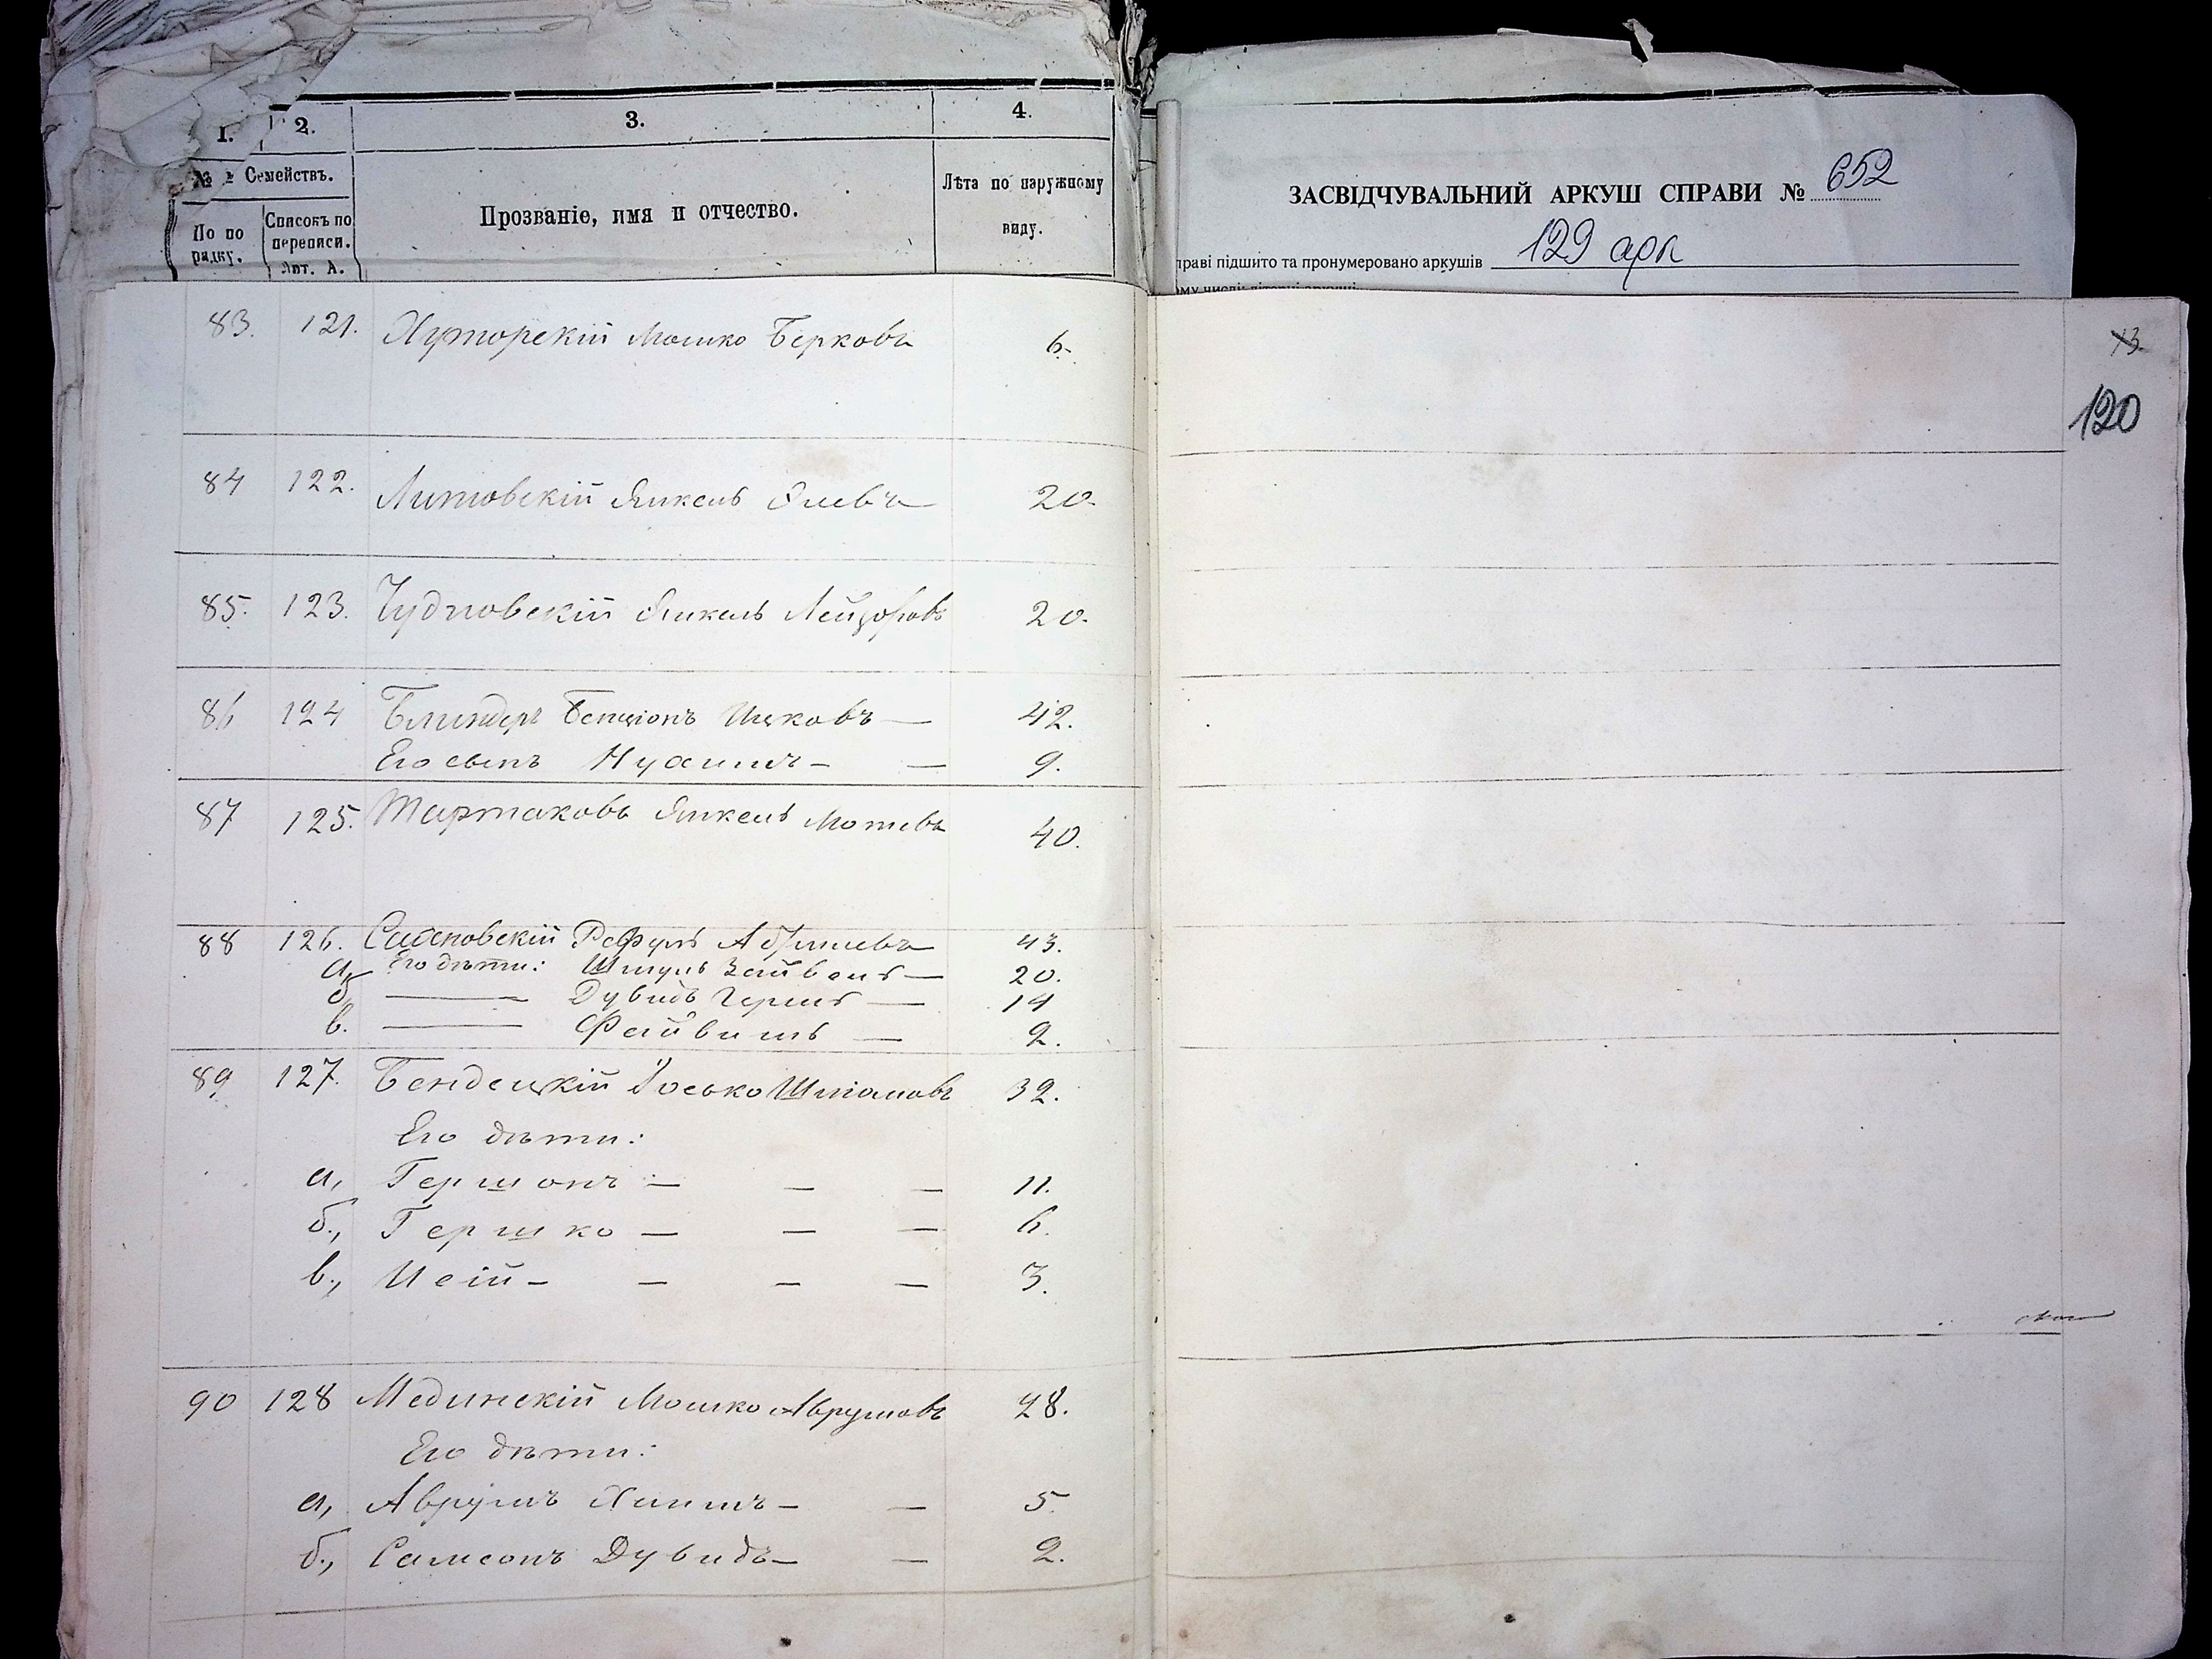 1.
2.
3.
4.
№ Семействъ.
По по рядку.
Списокъ по переписи. Лит. А.
Прозваніе, имя и отчество.
Лѣта по наружному виду.
83. 121. Хуторскій Мошко Берковъ 6.
84 122. Литовскій Янкель 20.
85. 123. Чудновскій Янкель Лейзоровъ 20.
86 124 Блиндеръ Бенціонъ Ицковъ — 42.
Его сынъ Нухимъ — — 9.
87 125. Тартаковъ Янкель Мотевъ 40.
88 126. Рефулъ 43.
а, Его дѣти: Шмуль Зайвель — 20.
б, — Дувидъ Герш — 14
в. — Файвишъ — 2.
89 127. Бендецкій Іосько 32.
Его дѣти:
а, Гершонъ — — — 11.
б., Гершко — — — 6.
в., — — — 3.
90 128 Мединскій Мошко Аврумовъ 28.
Его дѣти:
а, Аврумъ Хаимъ — — 5.
б., Самсонъ Дувидъ — — 2.
ЗАСВІДЧУВАЛЬНИЙ АРКУШ СПРАВИ № 652
праві підшито та пронумеровано аркушів 129 арк
ому числі: літерні аркуші
13.
120